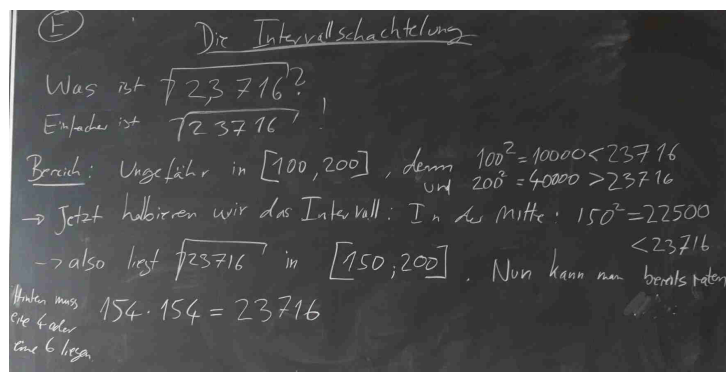 E
Die Intervallschachtelung
Was ist √2,3716?
Einfacher ist √23716!
Bereich: Ungefähr in [100,200], denn 100² = 10000 < 23716
und 200² = 40000 > 23716
→ Jetzt halbieren wir das Intervall: In der Mitte: 150² = 22500
< 23716
→ also liegt √23716 in [150,200]. Nun kann man bereits raten
Hinten muss
eine 4 oder
eine 6 liegen
154 · 154 = 23716